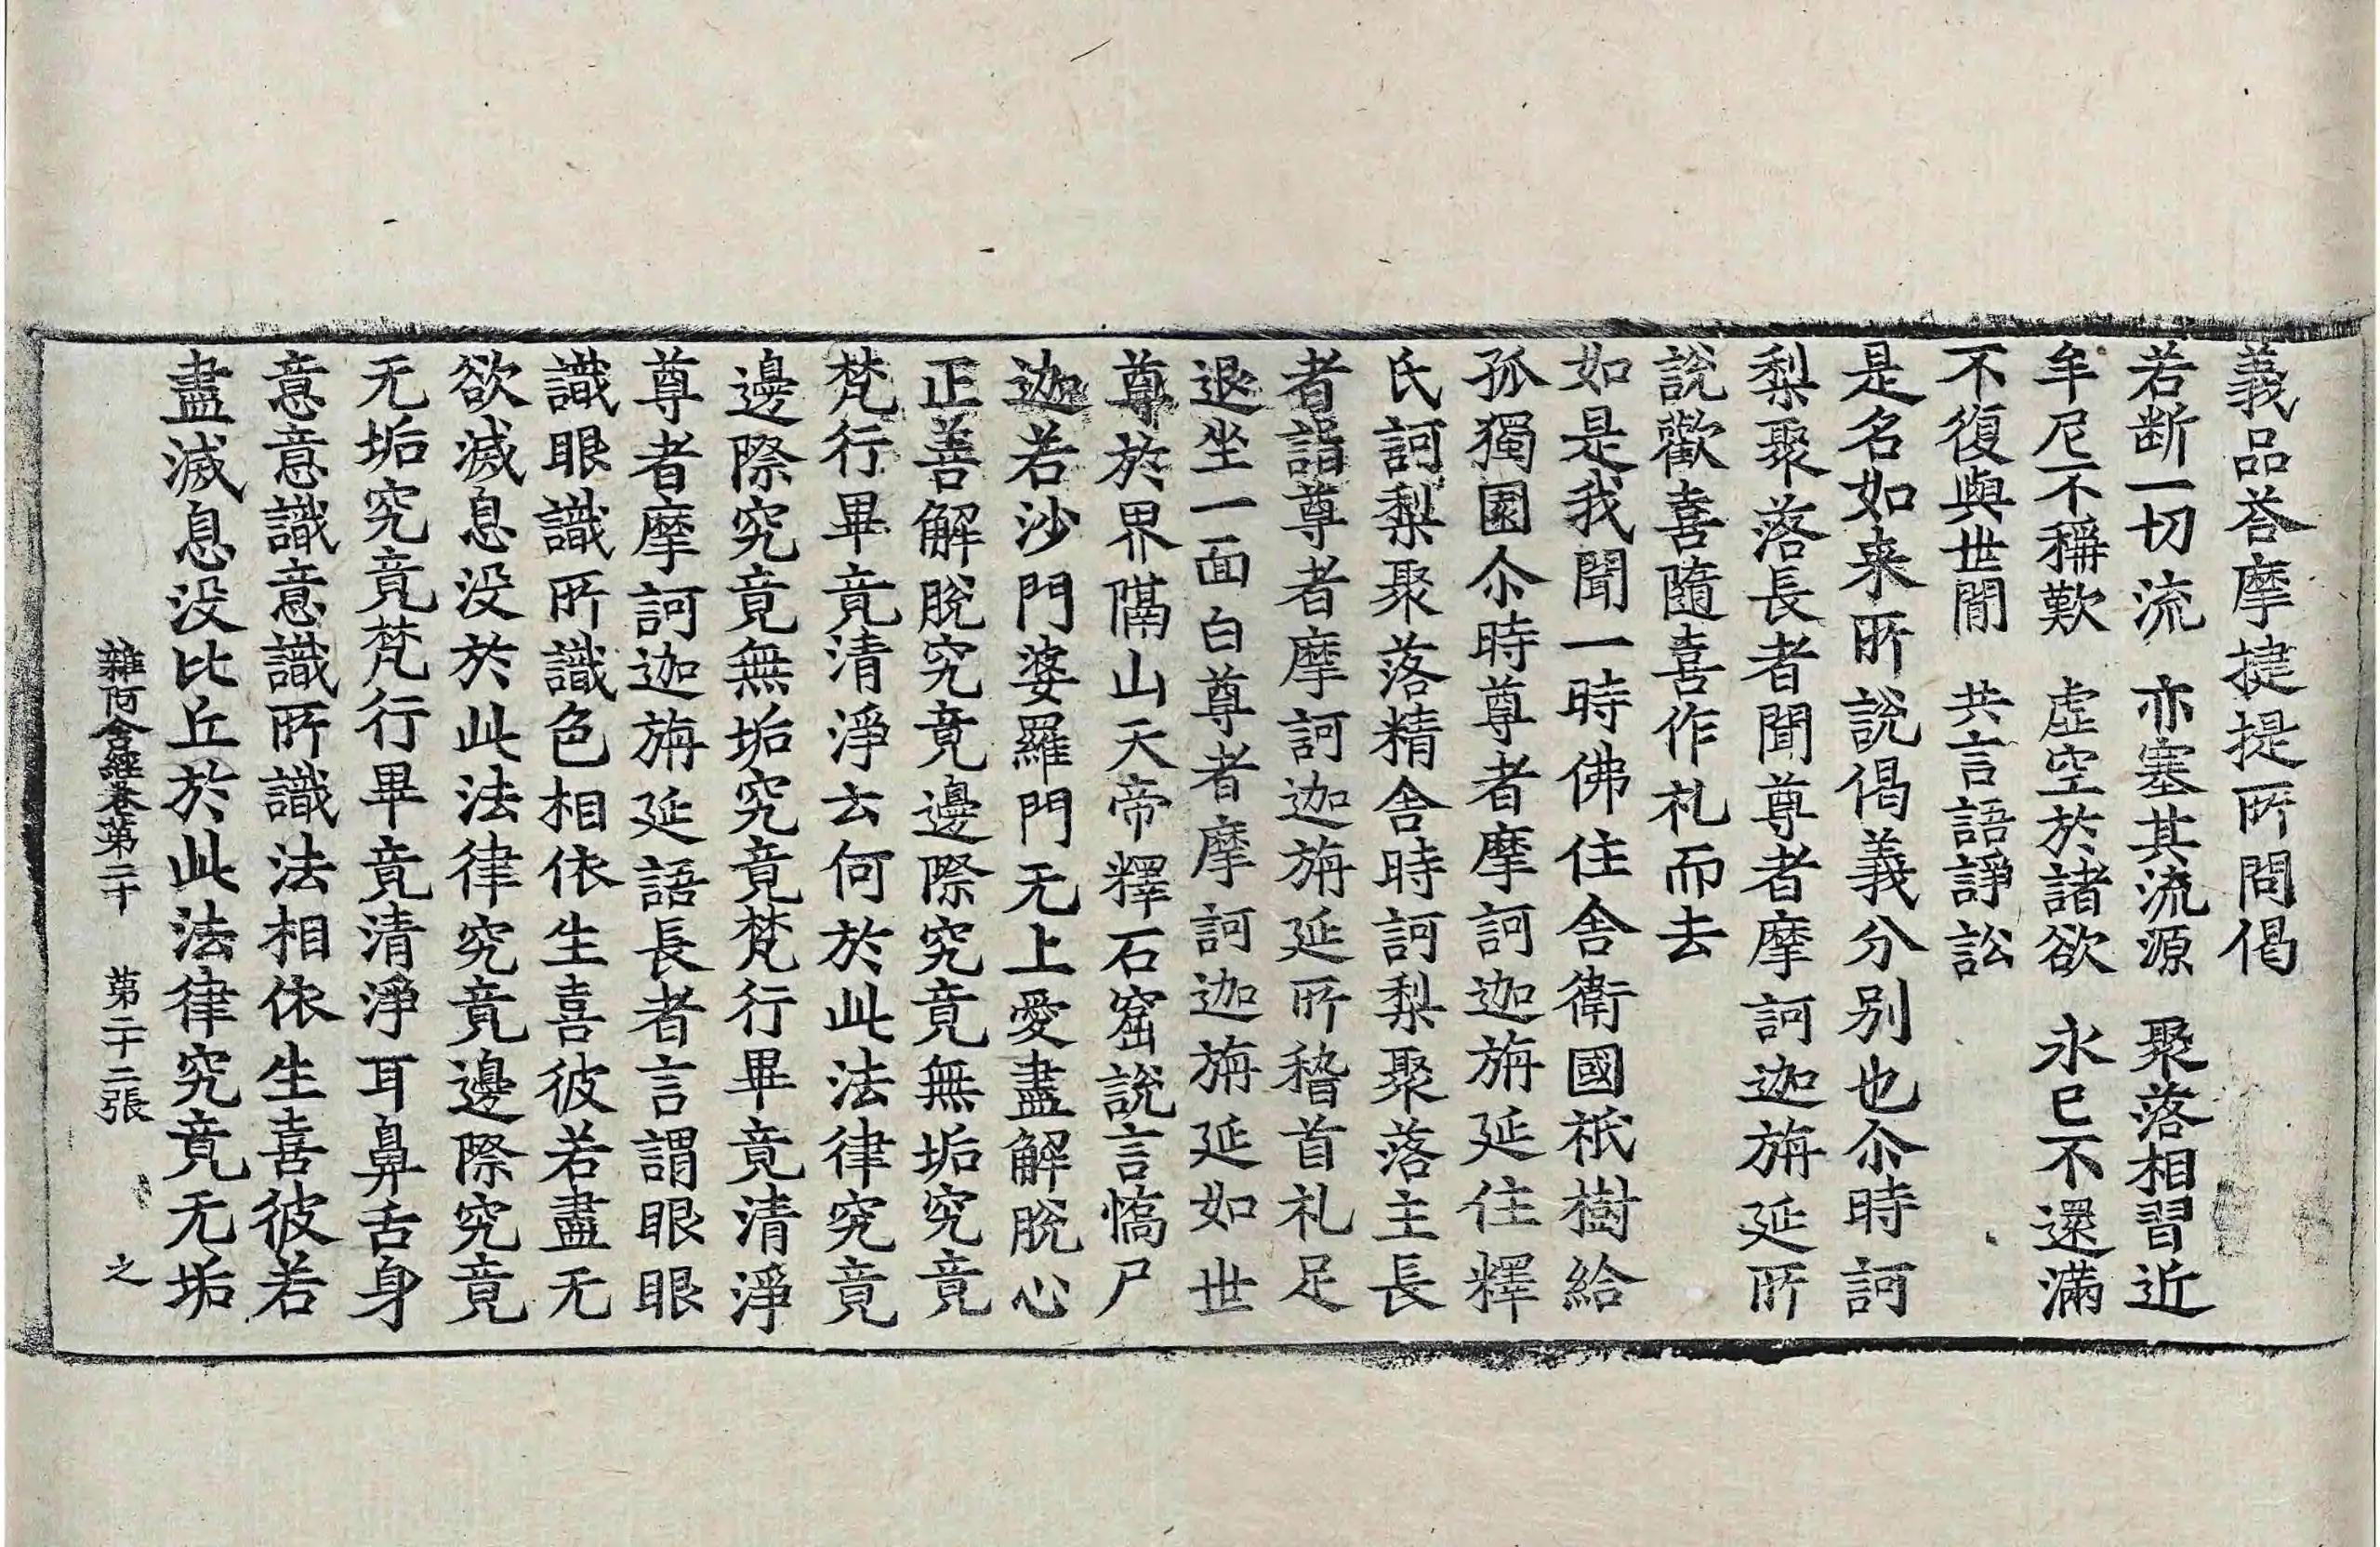 義品荅摩揵提所問偈
若断一切流　亦塞其流源　聚落相習近
牟尼不稱歎　虛空於諸欲　永已不還滿
不復與世閒　共言語諍訟
是名如来所說偈義分別也尒時訶
梨聚落長者聞尊者摩訶迦旃延所
說歡喜隨喜作礼而去
如是我聞一時佛住舍衛國祇樹給
孤獨園尒時尊者摩訶迦旃延住釋
氏訶梨聚落精舍時訶梨聚落主長
者詣尊者摩訶迦旃延所稽首礼足
退坐一面白尊者摩訶迦旃延如世
尊於界隔山天帝釋石窟說言憍尸
迦若沙門婆羅門无上愛盡解脫心
正善解脫究竟邊際究竟無垢究竟
梵行畢竟清淨云何於此法律究竟
邊際究竟無垢究竟梵行畢竟清淨
尊者摩訶迦旃延語長者言謂眼眼
識眼識所識色相依生喜彼若盡无
欲滅息没於此法律究竟邊際究竟
无垢究竟梵行畢竟清淨耳鼻舌身
意意識意識所識法相依生喜彼若
盡滅息没比丘於此法律究竟无垢
雜阿含經卷第二十　第二十二張　之